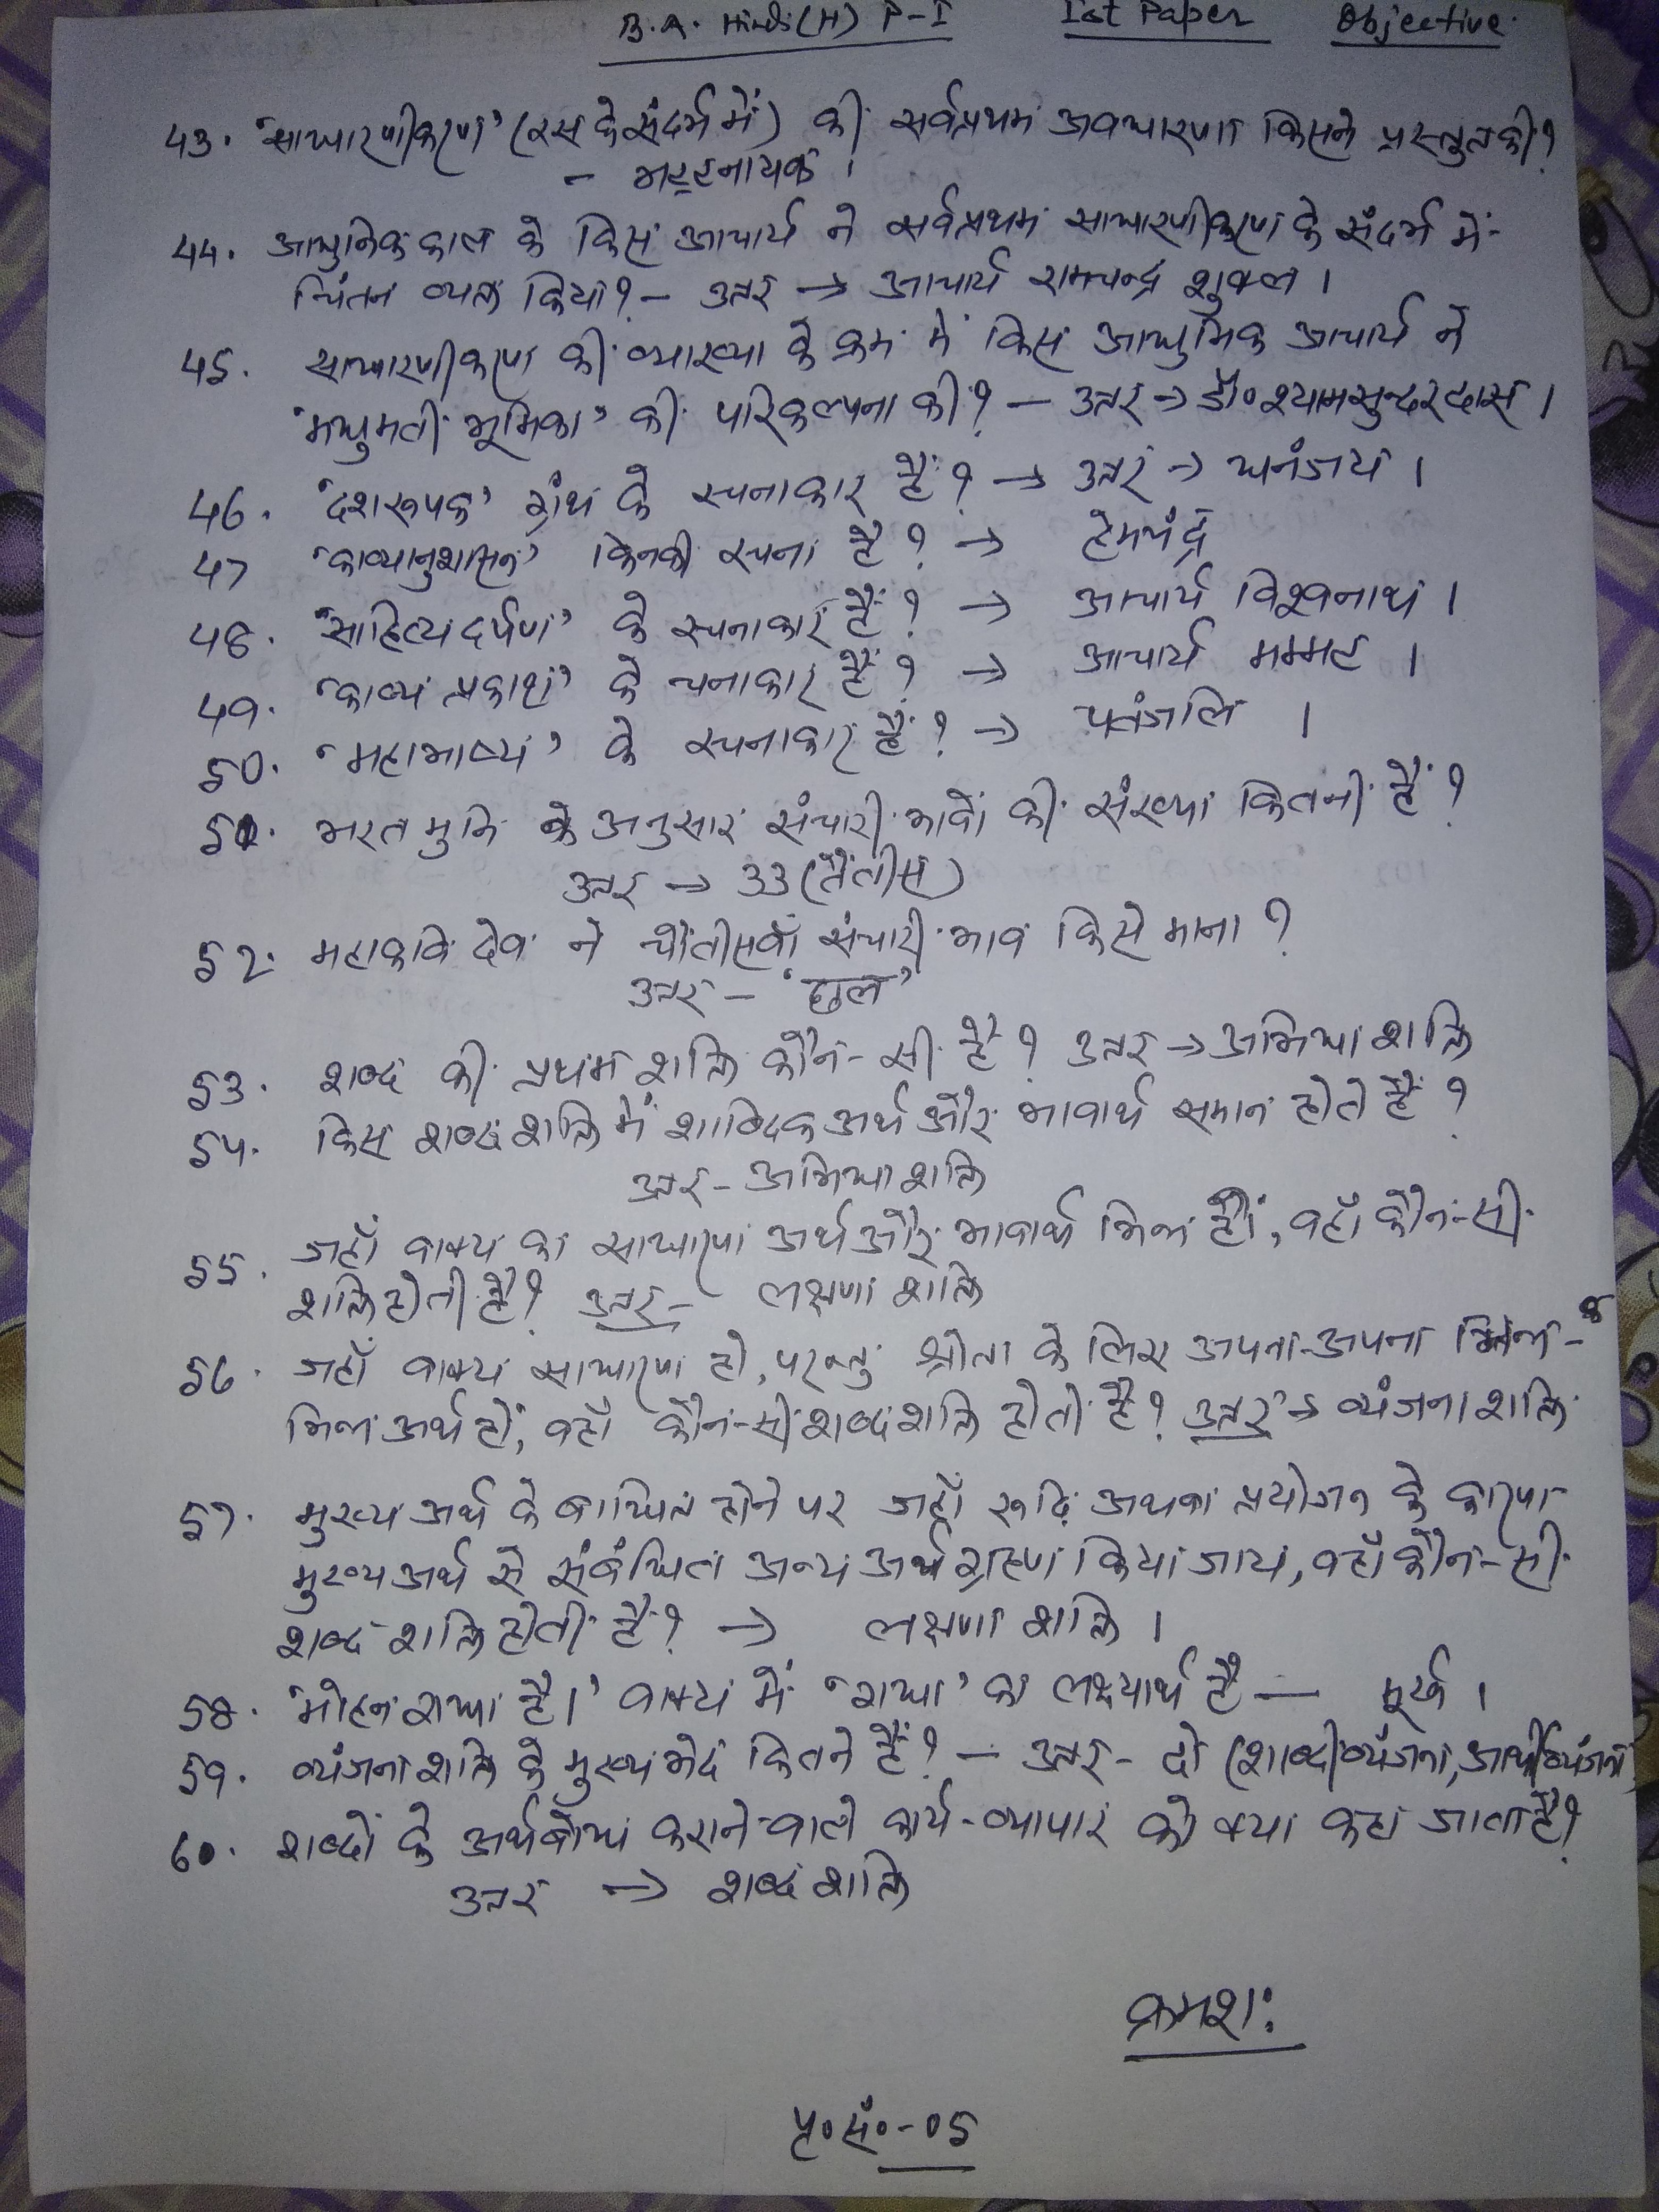 B.A. Hindi(H) P-I Ist Paper Objective.
43. 'साधारणीकरण' (रस के संदर्भ में) की सर्वप्रथम अवधारणा किसने प्रस्तुत की?
- भट्टनायक।
44. आधुनिक काल के किस आचार्य ने सर्वप्रथम साधारणीकरण के संदर्भ में
चिंतन व्यक्त किया? - उत्तर → आचार्य रामचन्द्र शुक्ल।
45. साधारणीकरण की व्याख्या के क्रम में किस आधुनिक आचार्य ने
'मधुमती भूमिका' की परिकल्पना की? - उत्तर → डॉ० श्यामसुन्दरदास।
46. 'दशरूपक' ग्रंथ के रचनाकार हैं? → उत्तर → धनंजय।
47 'काव्यानुशासन' किनकी रचना है? → हेमचंद्र
48. 'साहित्य दर्पण' के रचनाकार हैं? → आचार्य विश्वनाथ।
49. 'काव्य प्रकाश' के रचनाकार हैं? → आचार्य मम्मट।
50. 'महाभाष्य' के रचनाकार हैं? → पतंजलि।
51. भरत मुनि के अनुसार संचारी भावों की संख्या कितनी है?
उत्तर → 33 (तैंतीस)
52. महाकवि देव ने चौंतीसवाँ संचारी भाव किसे माना?
उत्तर - 'छल'
53. शब्द की प्रथम शक्ति कौन-सी है? उत्तर → अभिधा शक्ति
54. किस शब्द शक्ति में शाब्दिक अर्थ और भावार्थ समान होते हैं?
उत्तर - अभिधा शक्ति
55. जहाँ वाक्य का साधारण अर्थ और भावार्थ भिन्न हों, वहाँ कौन-सी
शक्ति होती है? उत्तर - लक्षणा शक्ति
56. जहाँ वाक्य साधारण हो, परन्तु श्रोता के लिए अपना-अपना भिन्न-
भिन्न अर्थ हो, वहाँ कौन-सी शब्द शक्ति होती है? उत्तर → व्यंजना शक्ति
57. मुख्य अर्थ के बाधित होने पर जहाँ रूढ़ि अथवा प्रयोजन के कारण
मुख्य अर्थ से संबंधित अन्य अर्थ ग्रहण किया जाय, वहाँ कौन-सी
शब्द शक्ति होती है? → लक्षणा शक्ति।
58. 'मोहन गधा है।' वाक्य में 'गधा' का लक्ष्यार्थ है — मूर्ख।
59. व्यंजना शक्ति के मुख्य भेद कितने हैं? - उत्तर - दो (शाब्दी व्यंजना, आर्थी व्यंजना)
60. शब्दों के अर्थबोध कराने वाले कार्य-व्यापार को क्या कहा जाता है?
उत्तर → शब्द शक्ति
क्रमशः
पृ० सं० - 05